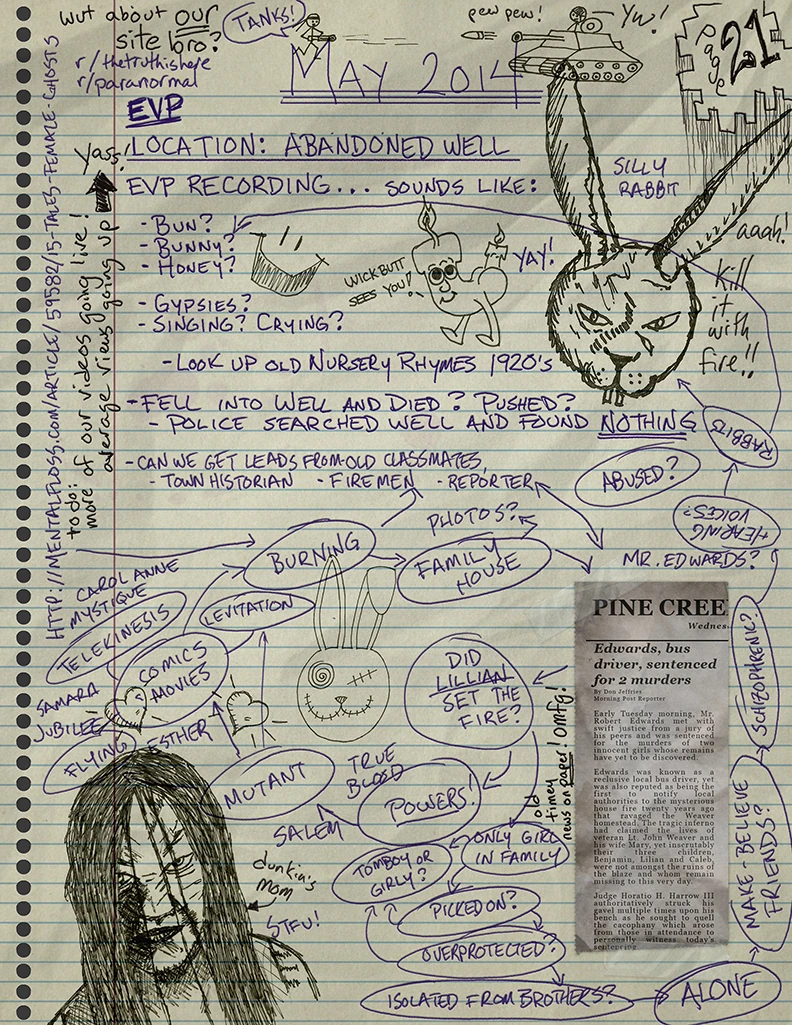 wut about our
site bro?
r/thetruthishere
r/paranormal
TANKS!
pew pew!
YW!
page
21
MAY 2014
EVP
LOCATION: ABANDONED WELL
EVP RECORDING... SOUNDS LIKE:
- BUN?
- BUNNY?
- HONEY?
- GYPSIES?
- SINGING? CRYING?
- LOOK UP OLD NURSERY RHYMES 1920's
- FELL INTO WELL AND DIED? PUSHED?
- POLICE SEARCHED WELL AND FOUND NOTHING
- CAN WE GET LEADS FROM OLD CLASSMATES,
- TOWN HISTORIAN - FIREMEN - REPORTER
WICKBUTT
SEES YOU!
YAY!
SILLY
RABBIT
aaah!
Kill
it
with
fire!!
HTTP://MENTALFLOSS.COM/ARTICLE/59582/15-TALES-FEMALE-GHOSTS
Yass!
to do:
more of our videos going live!
average views going up
ABUSED?
RABBITS
HEARING
VOICES?
PHOTOS?
BURNING
FAMILY
HOUSE
MR. EDWARDS?
CAROL ANNE
MYSTIQUE
TELEKINESIS
LEVITATION
COMICS
MOVIES
SAMARA
JUBILEE
FLYING
ESTHER
DID
LILLIAN
SET THE
FIRE?
MUTANT
TRUE
BLOOD
POWERS!
SALEM
old
timey
news on paper! omfg!
ONLY GIRL
IN FAMILY
TOMBOY OR
GIRLY?
PICKED ON?
OVERPROTECTED?
ISOLATED FROM BROTHERS?
ALONE
MAKE-BELIEVE
FRIENDS?
SCHIZOPHRENIC?
dunkin's
mom
STFU!
PINE CREE
Wednes
Edwards, bus
driver, sentenced
for 2 murders
By Don Jeffries
Morning Post Reporter
Early Tuesday morning, Mr.
Robert Edwards met with
swift justice from a jury of
his peers and was sentenced
for the murders of two
innocent girls whose remains
have yet to be discovered.
Edwards was known as a
reclusive local bus driver, yet
was also reputed as being the
first to notify local
authorities to the mysterious
house fire twenty years ago
that ravaged the Weaver
homestead. The tragic inferno
had claimed the lives of
veteran Lt. John Weaver and
his wife Mary, yet inscrutably
their three children,
Benjamin, Lilian and Caleb,
were not amongst the ruins of
the blaze and whom remain
missing to this very day.
Judge Horatio H. Harrow III
authoritatively struck his
gavel multiple times upon his
bench as he sought to quell
the cacophany which arose
from those in attendance to
personally witness today's
sentencing.